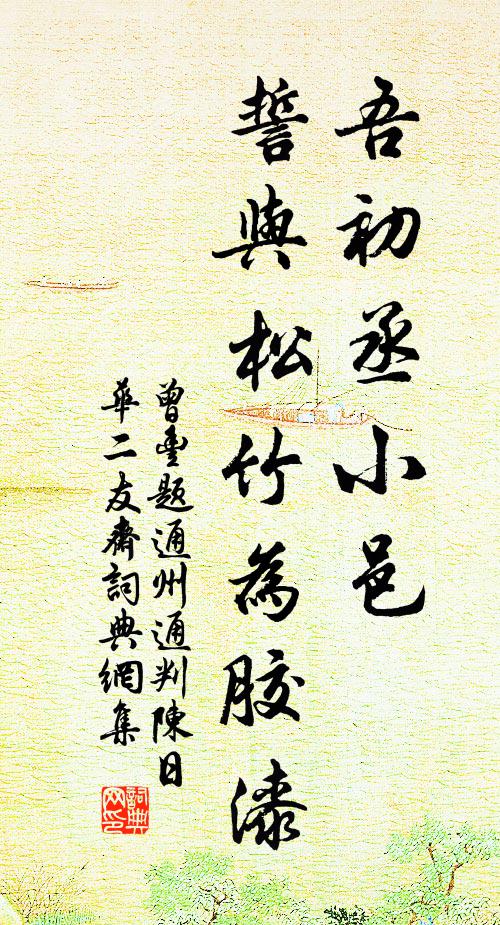 吾初丞小邑
誓與松竹為膠漆
曾豐題通州通判陳日
華二友齋詞典網集
詞典
网印